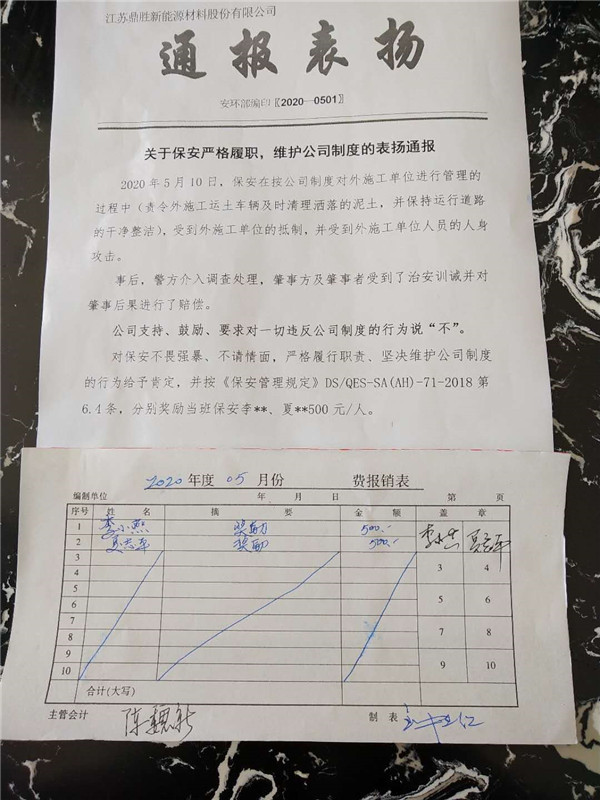 江苏鼎胜新能源材料股份有限公司
通报表扬
安环部编印〖2020—0501〗
关于保安严格履职，维护公司制度的表扬通报
2020年5月10日，保安在按公司制度对外施工单位进行管理的
过程中（责令外施工运土车辆及时清理洒落的泥土，并保持运行道路
的干净整洁），受到外施工单位的抵制，并受到外施工单位人员的人身
攻击。
事后，警方介入调查处理，肇事方及肇事者受到了治安训诫并对
肇事后果进行了赔偿。
公司支持、鼓励、要求对一切违反公司制度的行为说“不”。
对保安不畏强暴、不请情面，严格履行职责、坚决维护公司制度
的行为给予肯定，并按《保安管理规定》DS/QES-SA(AH)-71-2018 第
6.4条，分别奖励当班保安李**、夏**500元/人。
2020 年度 05 月份 费报销表
编制单位 年 月 日 第 页
序号 姓 名 摘 要 金 额 盖 章
1 奖励 500.-
2 奖励 500.-
3 3 4
4
5 5 6
6
7 7 8
8
9 9 10
10
合计(大写)
主管会计 制 表